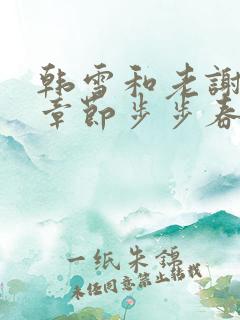 韩雪和老謝
章節步步春
一纸朱錦
未经同意禁止转载